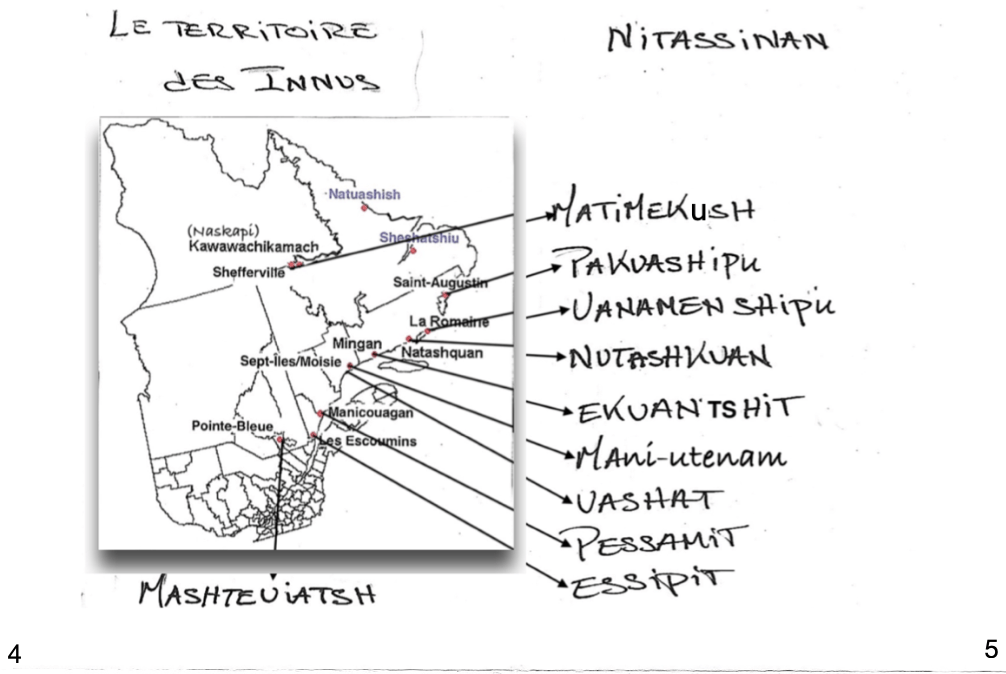 LE TERRITOIRE
DES INNUS
NITASSINAN
Natuashish
(Naskapi)
Kawawachikamach
Sheshatshiu
Shefferville
Saint-Augustin
La Romaine
Mingan
Natashquan
Sept-Iles/Moisie
Manicouagan
Pointe-Bleue
Les Escoumins
MATIMEKUSH
PAKUASHIPU
UANAMEN SHIPU
NUTASHKUAN
EKUANTSHIT
MANI-utenam
UASHAT
PESSAMIT
ESSIPIT
MASHTEUIATSH
4
5